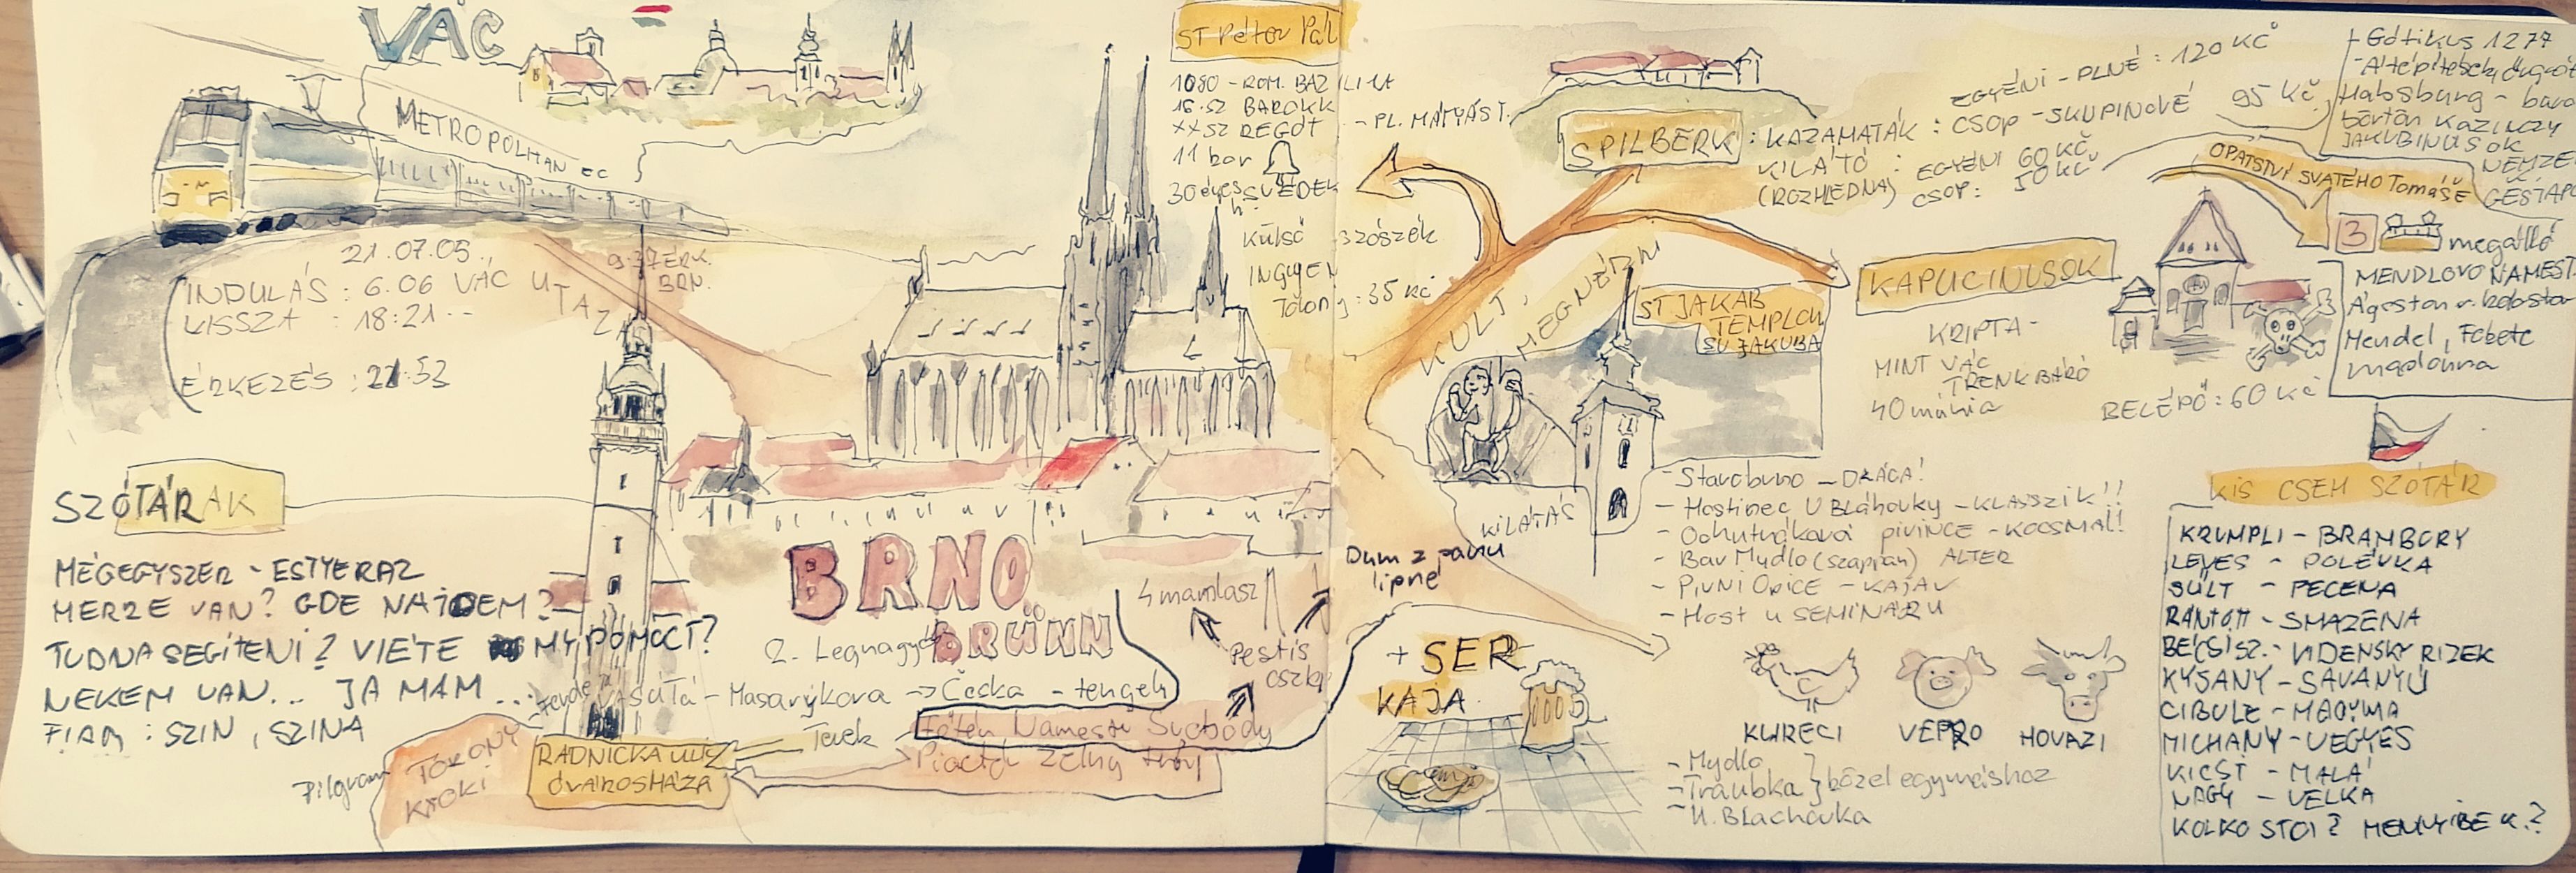 VÁC
METROPOLITAN EC
21.07.05.
INDULÁS : 6.06 VÁC
VISSZA : 18:21
ÉRKEZÉS : 21:53
UTAZÁS
9.37 ÉRK.
BRN.
SZÓTÁRAK
MÉGEGYSZER - ESTYERAZ
MERZE VAN? GDE NAJDEM?
TUDNA SEGÍTENI? VIETE MY POMOCT?
NEKEM VAN... JA MAM...
FIAM : SZIN, SZINA
Pilgram
TORONY
KROKI
RADNICKA
ÓVÁROSHÁZA
BRNO
BRÜNN
2. Legnagyobb
- Masarykova -> Česka - tengely
Terek
Főtér Namesti Svobody
Piactér Zelny trh
4 mamlasz
Pestis
oszlop
ST Péter Pál
1080 - ROM. BAZILIKA
16. SZ BAROKK
XX SZ REGÓT
- PL. MÁTYÁS T.
11 kor
30 éves h. SVÉDEK
Külső szószék
INGYEN
Torony : 35 Kč
SPILBERK : KAZAMATÁK :
EGYÉNI - PLNÉ : 120 Kč
CSOP - SKUPINOVÉ 95 Kč
KILÁTÓ :
(ROZHLEDNA)
EGYÉNI 60 Kč
CSOP: 50 Kč
+ Gótikus 1277
Habsburg -
börtön Kazinczy
JAKUBINUSOK
OPATSTVÍ SVATÉHO Tomáše
3 megálló
MENDLOVO NAMEST.
Ágoston r. kolostor
Mendel, Fekete
madonna
KULT, MEGNÉZNI
ST JAKAB
TEMPLOM
SV JAKUBA
KILÁTÁS
KAPUCINUSOK
KRIPTA -
MINT VÁC
TRENK BÁRÓ
40 múmia
BELÉPŐ : 60 Kč
Dum z panu
lipné
- Starobrno - DRÁGA!
- Hostinec U Bláhovky - KLASSZIK!!
- Ochutnáková pivince - KOCSMA!!
- Bar Mydlo (szappan) ALTER
- PIVNI Opice - KAJÁV
- Host u SEMINÁRU
+ SER
KAJA
KURECI
VEPRO
HOVAZI
- Mydlo
- Traubka
- U. Blachovka
közel egymáshoz
KIS CSEH SZÓTÁR
KRUMPLI - BRAMBORY
LEVES - POLÉVKA
SÜLT - PECENA
RÁNTOTT - SMAZENA
BÉCSI SZ. - VIDENSKY RIZEK
KYSANY - SAVANYÚ
CIBULE - HAGYMA
MICHANY - VEGYES
KICSI - MALÁ
NAGY - VELKA
KOLKO STOI? MENNYIBE K.?